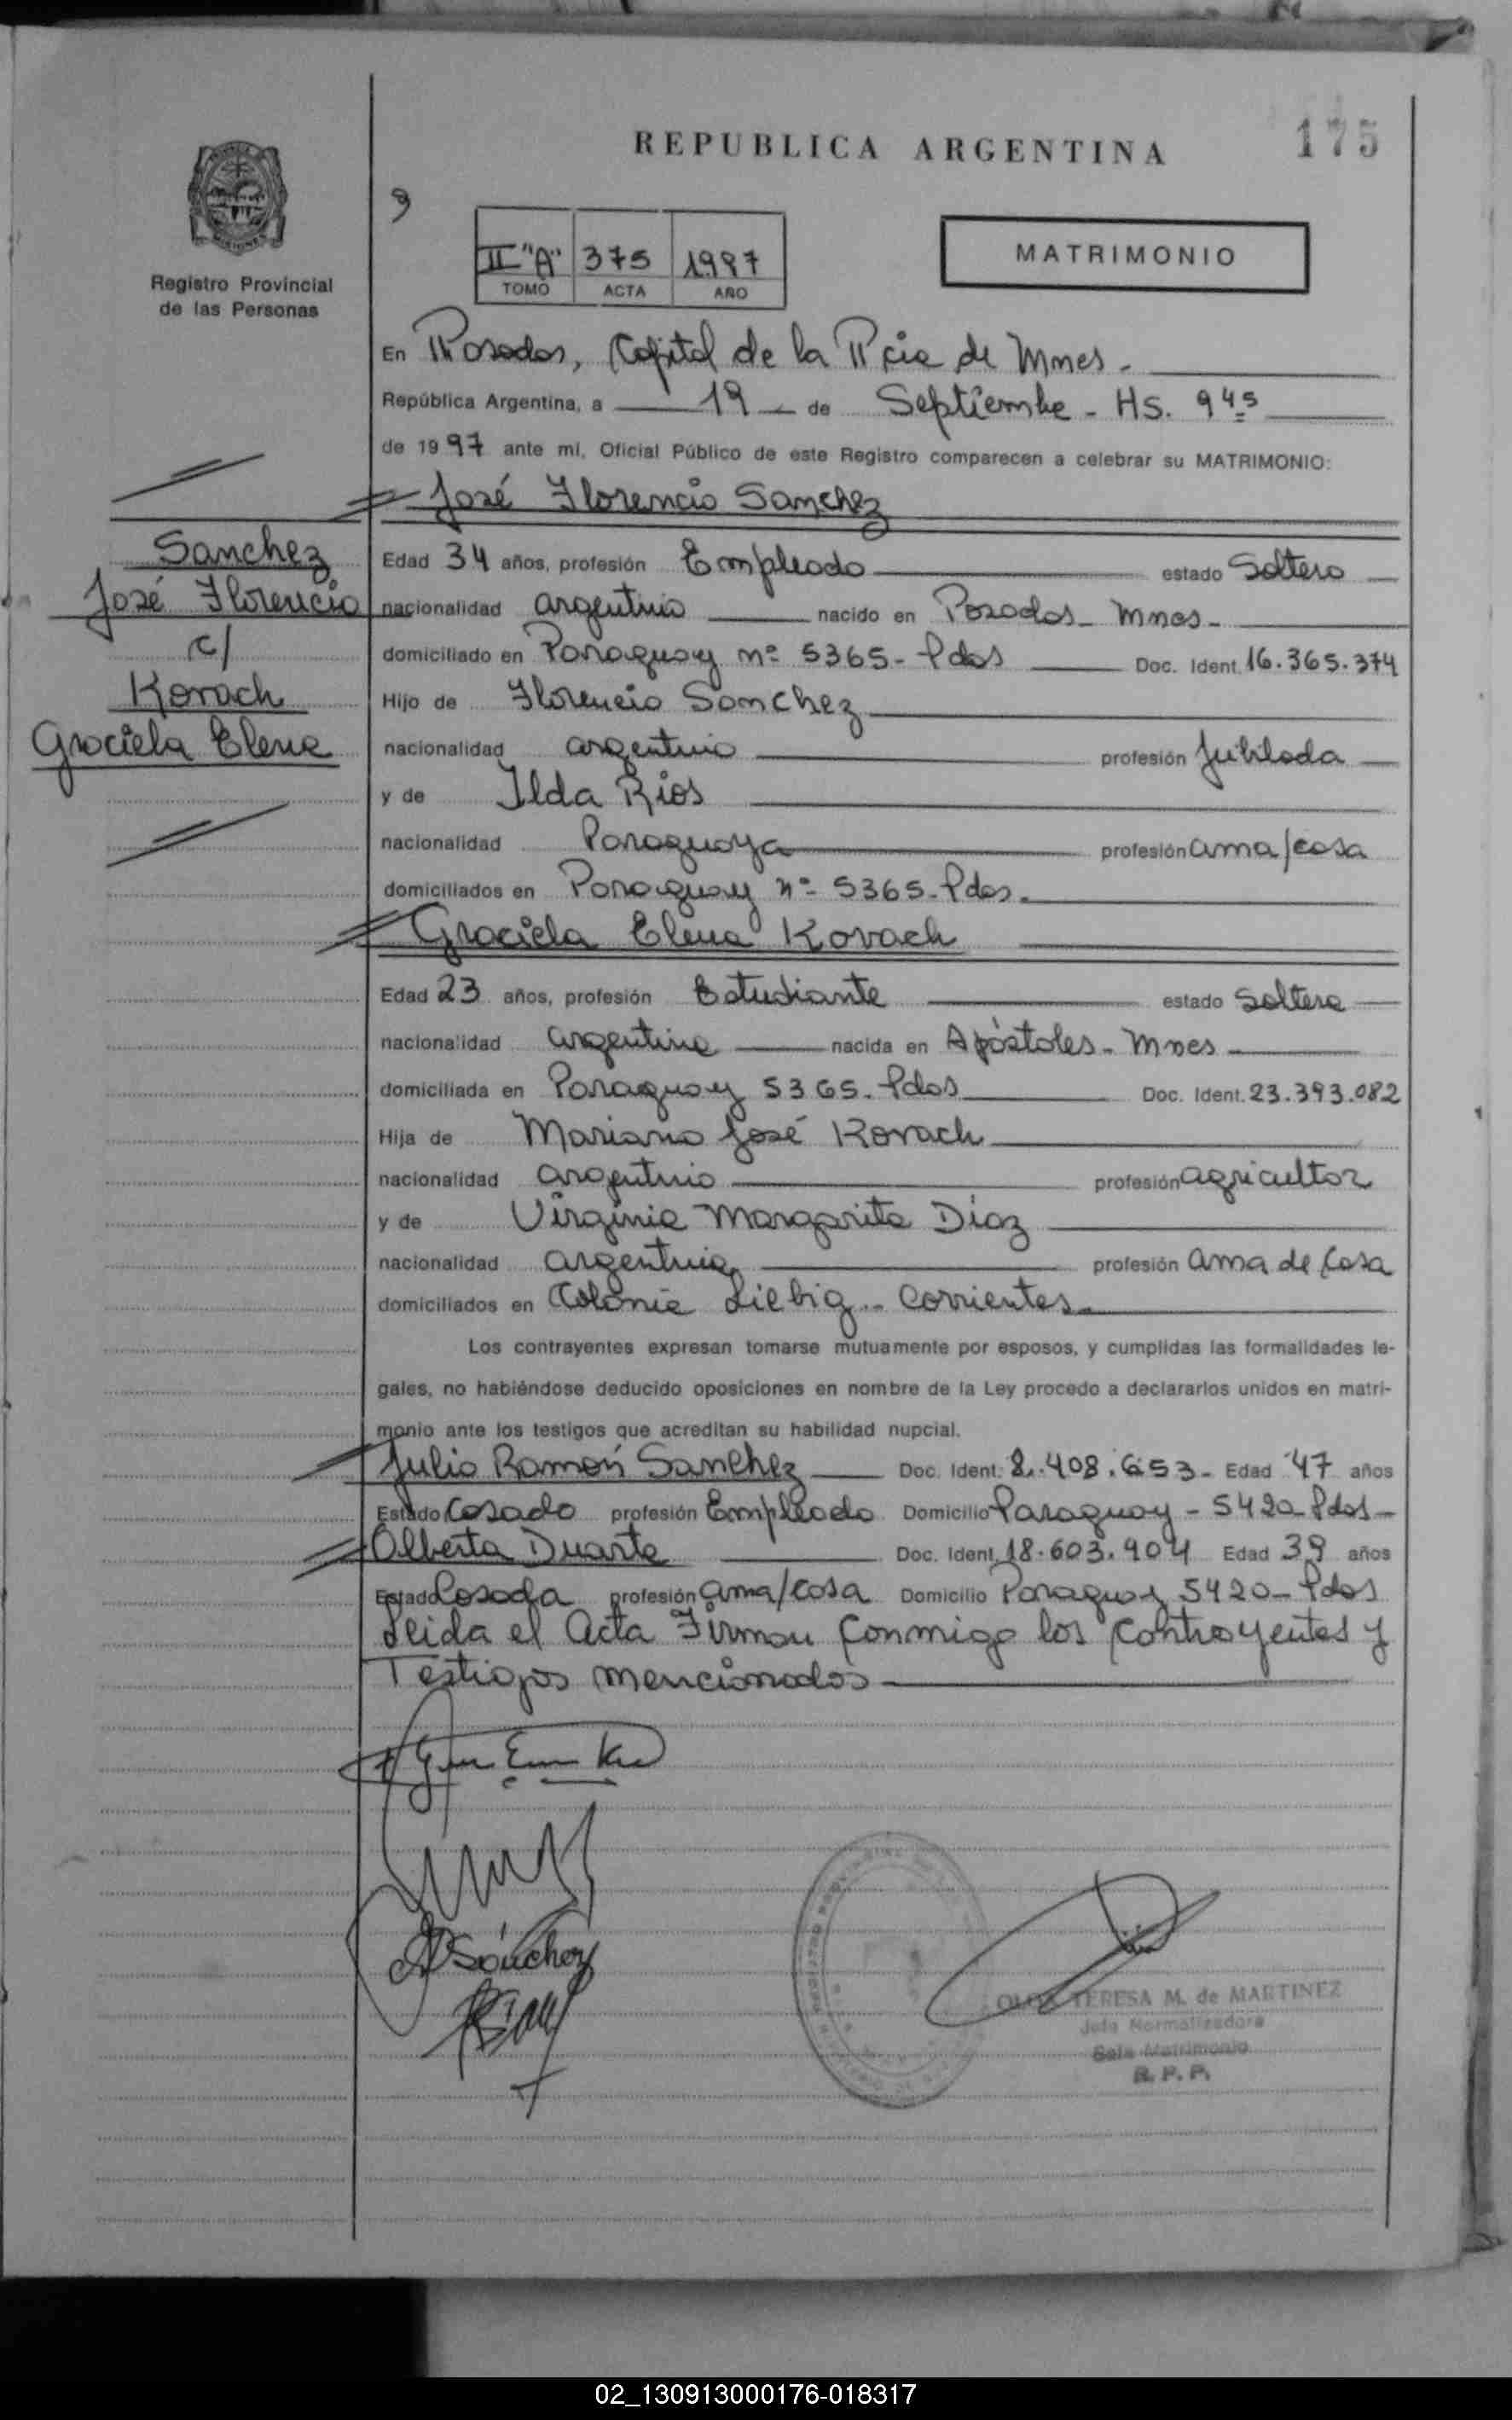 REPUBLICA ARGENTINA
175
Registro Provincial
de las Personas
II "A" 375 1997
TOMO ACTA AÑO
MATRIMONIO
En Posadas, Capital de la Pcia de Mnes.
República Argentina, a 19 de Septiembre - Hs. 9 45
de 1997 ante mi, Oficial Público de este Registro comparecen a celebrar su MATRIMONIO:
José Florencio Sanchez
Sanchez
José Florencio
c/
Kovach
Graciela Elena
Edad 34 años, profesión Empleado estado Soltero
nacionalidad argentino nacido en Posadas - Mnes -
domiciliado en Paraguay nº 5365 - Pdas Doc. Ident. 16.365.374
Hijo de Florencio Sanchez
nacionalidad argentino profesión Jubilada
y de Ilda Rios
nacionalidad Paraguaya profesión ama/casa
domiciliados en Paraguay nº 5365 - Pdas.
Graciela Elena Kovach
Edad 23 años, profesión Estudiante estado Soltera
nacionalidad argentina nacida en Apóstoles - Mnes
domiciliada en Paraguay 5365 - Pdas Doc. Ident. 23.393.082
Hija de Mariano José Kovach
nacionalidad argentino profesión agricultor
y de Virginia Margarita Diaz
nacionalidad argentina profesión ama de Casa
domiciliados en Colonia Liebig - Corrientes
Los contrayentes expresan tomarse mutuamente por esposos, y cumplidas las formalidades le-
gales, no habiéndose deducido oposiciones en nombre de la Ley procedo a declararlos unidos en matri-
monio ante los testigos que acreditan su habilidad nupcial.
Julio Ramón Sanchez Doc. Ident. 8.408.653 - Edad 47 años
Estado Casado profesión Empleado Domicilio Paraguay - 5420 - Pdas -
Alberta Duarte Doc. Ident. 18.603.904 Edad 39 años
Estado Casada profesión ama/casa Domicilio Paraguay 5420 - Pdas
Leida el Acta Firman Conmigo los Contrayentes y
Testigos mencionados
Sánchez
TERESA M. de MARTINEZ
Jefa Normalizadora
Sala Matrimonio
R. P. P.
02_130913000176-018317